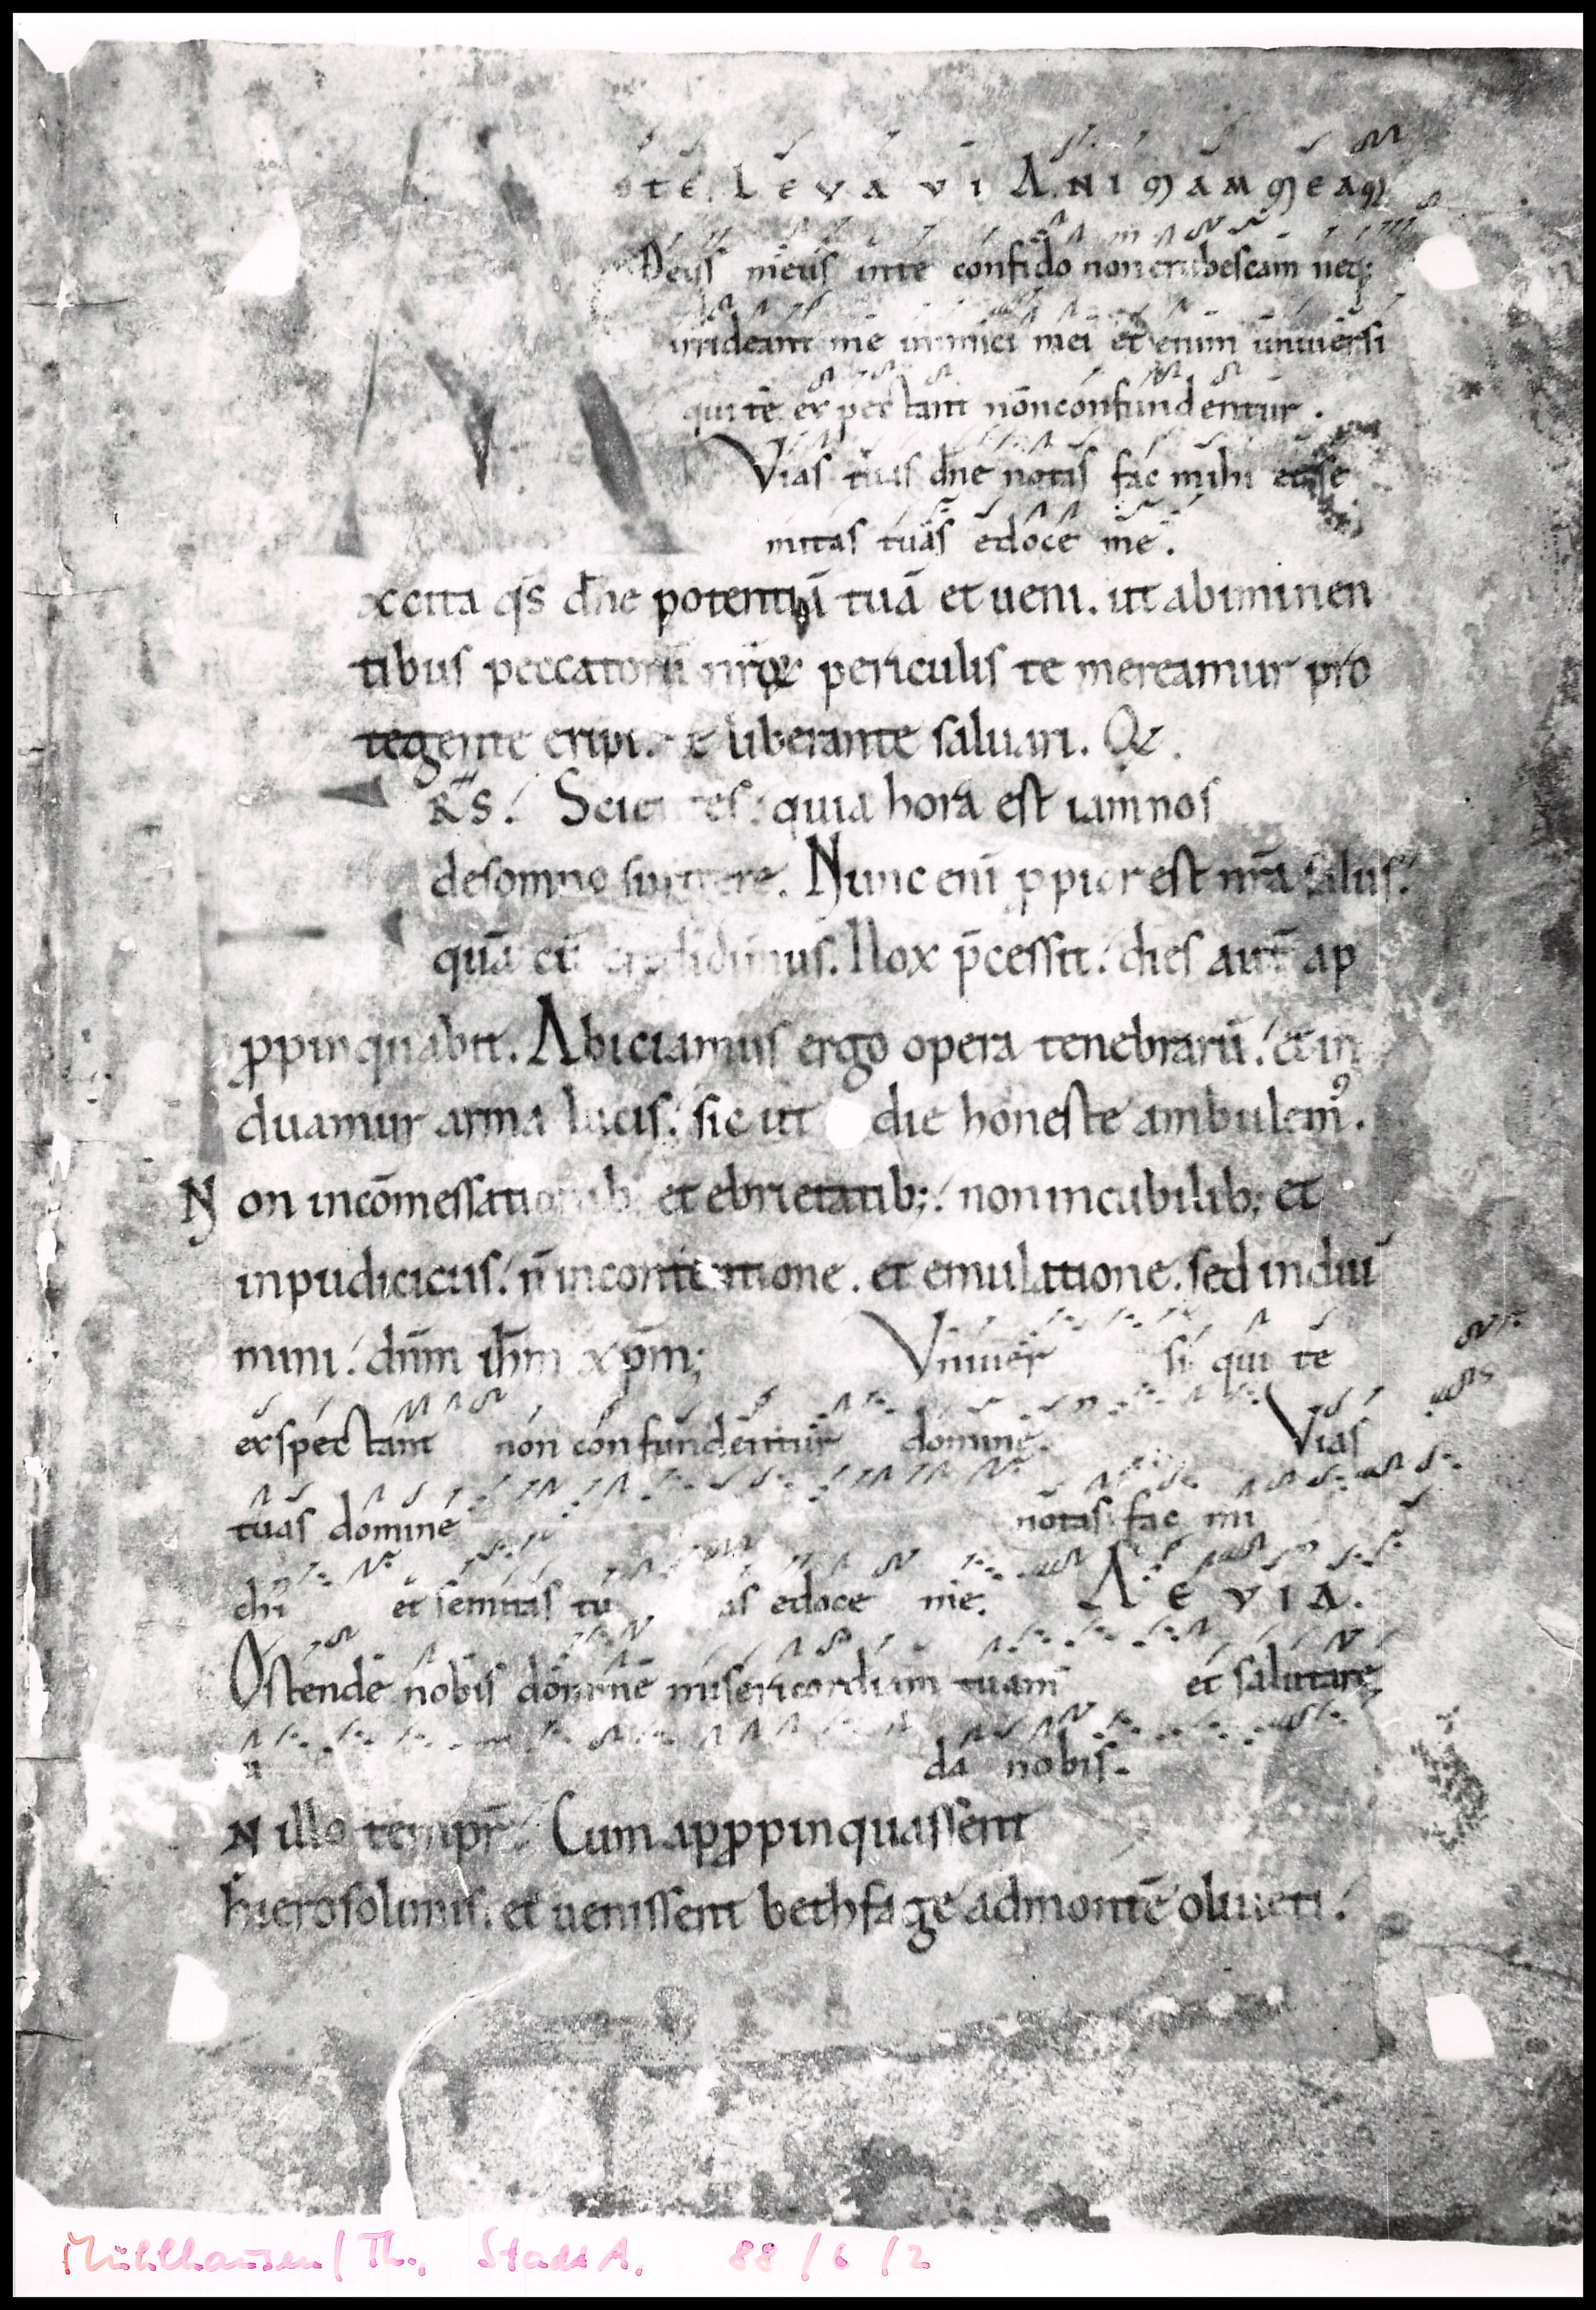 TE LEVAVI ANIMAM MEAM
Deus meus inte confido non erubescam neq;
irrideant me inimici mei et enim uniuersi
qui te exspectant non confundentur.
Vias tuas dne notas fac mihi et se
mitas tuas edoce me.
xcita qs dne potentiā tuā et ueni. ut abiminen
tibus peccatorū nrōꝝ periculis te mereamur pro
tegente eripi. te liberante saluari. Q̄
Scientes quia hora est iam nos
desomno surgere. Nunc enī ꝓpior est nrā salus.
quā cū credidimus. Nox p̄cessit. dies aut̄ ap
ꝓpinquabit. Abiciamus ergo opera tenebrarū. et in
duamur arma lucis. sic ut die honeste ambulem⁹.
Non incōmessationib; et ebrietatib;. non incubilib; et
inpudiciciis. n̄ incontentione. et emulatione. sed indui
mini. dn̄m ihm̄ xp̄m;   Vniuer   si qui te
exspectant non confundentur domine.   Vias
tuas domine   notas fac mi
chi et semitas tu   as edoce me. A E V I A.
Ostende nobis domine misericordiam tuam   et salutare
da nobis.
N illo tempr̄. Cum apꝓpinquassent
hierosolimis. et uenissent bethfage admontē oliueti.
Mühlhausen/Th., StadtA. 88/6/2